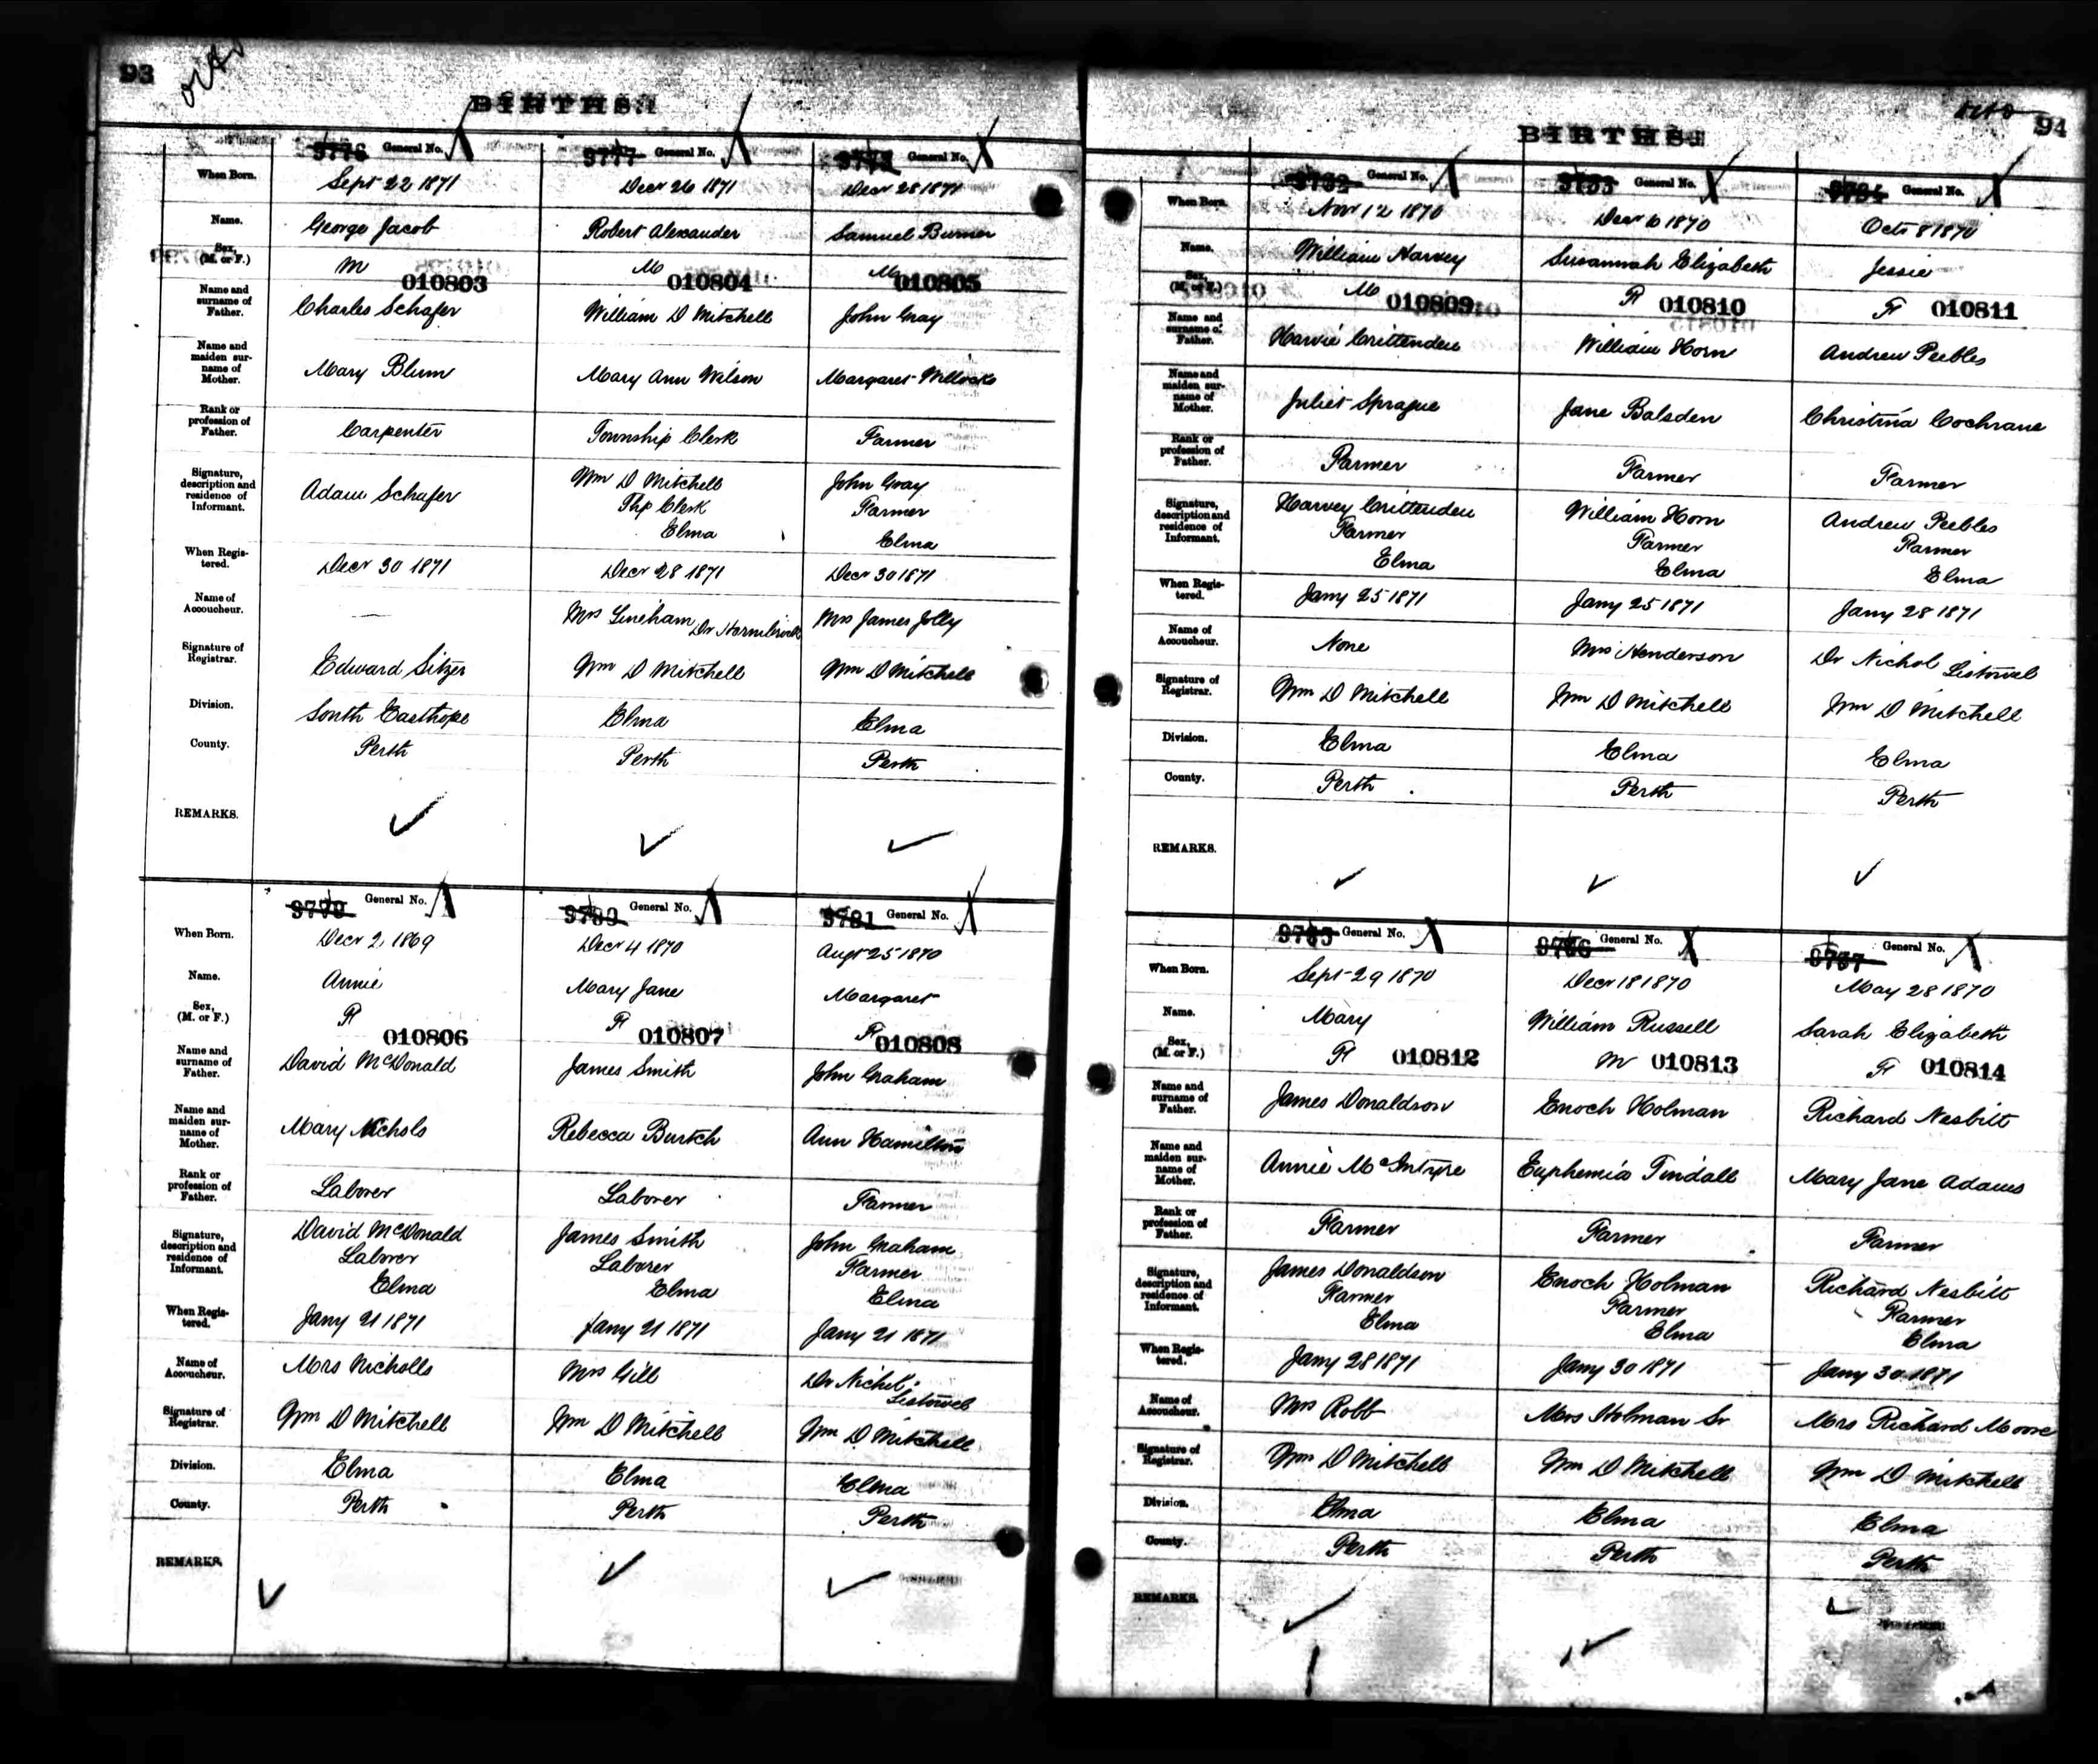 93
BIRTHS.
9776 General No. 9777 General No. General No.
When Born. Sept 22 1871 Decr 26 1871 Decr 28 1871
Name. George Jacob Robert Alexander Samuel
Sex, (M. or F.) M M M
010803 010804 010805
Name and surname of Father. Charles Schafer William D Mitchell John Gray
Name and maiden surname of Mother. Mary Blum Mary Ann Wilson Margaret
Rank or profession of Father. Carpenter Township Clerk Farmer
Signature, description and residence of Informant. Adam Schafer Wm D Mitchell John Gray
Thp Clerk Farmer
Elma Elma
When Registered. Decr 30 1871 Decr 28 1871 Decr 30 1871
Name of Accoucheur. — Mrs Lineham Dr Mrs James Jolly
Signature of Registrar. Edward Sitzer Wm D Mitchell Wm D Mitchell
Division. South Easthope Elma Elma
County. Perth Perth Perth
REMARKS.
9779 General No. 9780 General No. 9781 General No.
When Born. Decr 2, 1869 Decr 4 1870 Augt 25 1870
Name. Annie Mary Jane Margaret
Sex, (M. or F.) F F F
010806 010807 010808
Name and surname of Father. David McDonald James Smith John Graham
Name and maiden surname of Mother. Mary Nichols Rebecca Burtch Ann Hamilton
Rank or profession of Father. Laborer Laborer Farmer
Signature, description and residence of Informant. David McDonald James Smith John Graham
Laborer Laborer Farmer
Elma Elma Elma
When Registered. Jany 21 1871 Jany 21 1871 Jany 21 1871
Name of Accoucheur. Mrs Nicholls Mrs Gill Dr Nichol Listowel
Signature of Registrar. Wm D Mitchell Wm D Mitchell Wm D Mitchell
Division. Elma Elma Elma
County. Perth Perth Perth
REMARKS.
94
BIRTHS.
General No. General No. General No.
When Born. Novr 12 1870 Decr 10 1870 Octr 8 1870
Name. William Harvey Susannah Elizabeth Jessie
Sex, (M. or F.) M F F
010809 010810 010811
Name and surname of Father. Harvie Crittenden William Horn Andrew Peebles
Name and maiden surname of Mother. Juliet Sprague Jane Balsden Christina Cochrane
Rank or profession of Father. Farmer Farmer Farmer
Signature, description and residence of Informant. Harvey Crittenden William Horn Andrew Peebles
Farmer Farmer Farmer
Elma Elma Elma
When Registered. Jany 25 1871 Jany 25 1871 Jany 28 1871
Name of Accoucheur. None Mrs Henderson Dr Nichol Listowel
Signature of Registrar. Wm D Mitchell Wm D Mitchell Wm D Mitchell
Division. Elma Elma Elma
County. Perth Perth Perth
REMARKS.
9785 General No. 9786 General No. 9787 General No.
When Born. Sept 29 1870 Decr 18 1870 May 28 1870
Name. Mary William Russell Sarah Elizabeth
Sex, (M. or F.) F M F
010812 010813 010814
Name and surname of Father. James Donaldson Enoch Holman Richard Nesbitt
Name and maiden surname of Mother. Annie McIntyre Euphemia Tindall Mary Jane Adams
Rank or profession of Father. Farmer Farmer Farmer
Signature, description and residence of Informant. James Donaldson Enoch Holman Richard Nesbitt
Farmer Farmer Farmer
Elma Elma Elma
When Registered. Jany 28 1871 Jany 30 1871 Jany 30 1871
Name of Accoucheur. Mrs Robb Mrs Holman Sr Mrs Richard Moore
Signature of Registrar. Wm D Mitchell Wm D Mitchell Wm D Mitchell
Division. Elma Elma Elma
County. Perth Perth Perth
REMARKS.